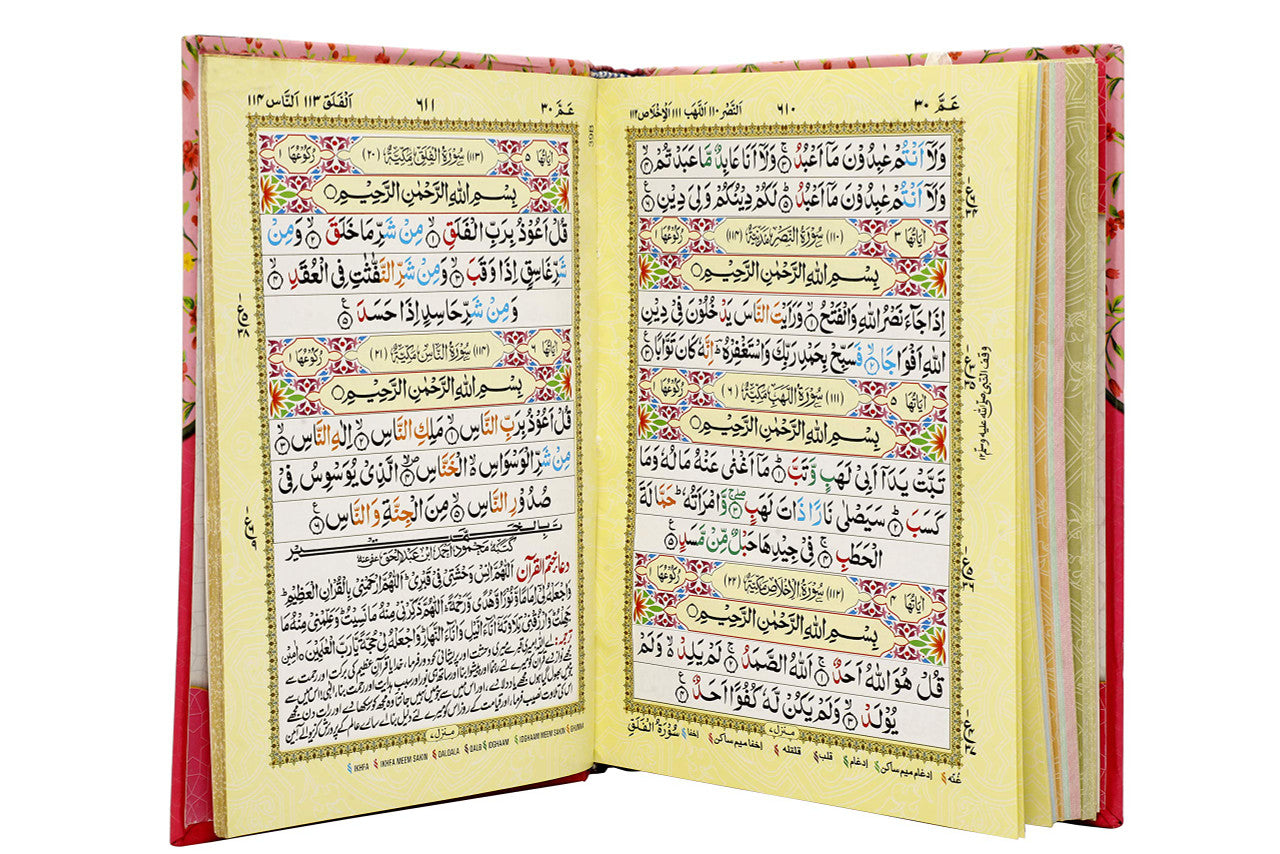 عَمَّ ٣٠
٦١٠
اَلنَّصْر ١١٠ اَللَّهَب ١١١ اَلْاِخْلَاص ١١٢
وَلَاۤ اَنْتُمْ عٰبِدُوْنَ مَاۤ اَعْبُدُ ۚ‏ ٣ وَلَاۤ اَنَا عَابِدٌ مَّا عَبَدْتُّمْ ۙ‏ ٤
وَلَاۤ اَنْتُمْ عٰبِدُوْنَ مَاۤ اَعْبُدُ ؕ‏ ٥ لَكُمْ دِيْنُكُمْ وَلِىَ دِيْنِ ٦
اٰيَاتُهَا ٣ (١١٠) سُوْرَةُ النَّصْرِ مَدَنِيَّةٌ (١١٤) رُكُوْعُهَا ١
بِسْمِ اللّٰهِ الرَّحْمٰنِ الرَّحِيْمِ
اِذَا جَآءَ نَصْرُ اللّٰهِ وَالْفَتْحُ ۙ‏ ١ وَرَاَيْتَ النَّاسَ يَدْخُلُوْنَ فِىْ دِيْنِ
اللّٰهِ اَفْوَاجًا ۙ‏ ٢ فَسَبِّحْ بِحَمْدِ رَبِّكَ وَاسْتَغْفِرْهُ ؕ اِنَّهٗ كَانَ تَوَّابًا ٣
اٰيَاتُهَا ٥ (١١١) سُوْرَةُ اللَّهَبِ مَكِّيَّةٌ (٦) رُكُوْعُهَا ١
بِسْمِ اللّٰهِ الرَّحْمٰنِ الرَّحِيْمِ
تَبَّتْ يَدَاۤ اَبِىْ لَهَبٍ وَّتَبَّ ؕ‏ ١ مَاۤ اَغْنٰى عَنْهُ مَالُهٗ وَمَا
كَسَبَ ؕ‏ ٢ سَيَصْلٰى نَارًا ذَاتَ لَهَبٍ ۖۚ‏ ٣ وَّامْرَاَتُهٗ ؕ حَمَّالَةَ
الْحَطَبِ ۚ‏ ٤ فِىْ جِيْدِهَا حَبْلٌ مِّنْ مَّسَدٍ ٥
اٰيَاتُهَا ٤ (١١٢) سُوْرَةُ الْاِخْلَاصِ مَكِّيَّةٌ (٢٢) رُكُوْعُهَا ١
بِسْمِ اللّٰهِ الرَّحْمٰنِ الرَّحِيْمِ
قُلْ هُوَ اللّٰهُ اَحَدٌ ۚ‏ ١ اَللّٰهُ الصَّمَدُ ۚ‏ ٢ لَمْ يَلِدْ ۙ وَلَمْ
يُوْلَدْ ۙ‏ ٣ وَلَمْ يَكُنْ لَّهٗ كُفُوًا اَحَدٌ ٤
منزل ٧
غُنّه ادغام میم ساکن ادغام قلب قلقله اخفا میم ساکن اخفا سُوْرَةُ الْفَلَقِ
وقف النبي صلى الله عليه وسلم ١٢
عَمَّ ٣٠
٦١١
اَلْفَلَق ١١٣ اَلنَّاس ١١٤
398
اٰيَاتُهَا ٥ (١١٣) سُوْرَةُ الْفَلَقِ مَكِّيَّةٌ (٢٠) رُكُوْعُهَا ١
بِسْمِ اللّٰهِ الرَّحْمٰنِ الرَّحِيْمِ
قُلْ اَعُوْذُ بِرَبِّ الْفَلَقِ ۙ‏ ١ مِنْ شَرِّ مَا خَلَقَ ۙ‏ ٢ وَمِنْ
شَرِّ غَاسِقٍ اِذَا وَقَبَ ۙ‏ ٣ وَمِنْ شَرِّ النَّفّٰثٰتِ فِى الْعُقَدِ ۙ‏ ٤
وَمِنْ شَرِّ حَاسِدٍ اِذَا حَسَدَ ٥
اٰيَاتُهَا ٦ (١١٤) سُوْرَةُ النَّاسِ مَكِّيَّةٌ (٢١) رُكُوْعُهَا ١
بِسْمِ اللّٰهِ الرَّحْمٰنِ الرَّحِيْمِ
قُلْ اَعُوْذُ بِرَبِّ النَّاسِ ۙ‏ ١ مَلِكِ النَّاسِ ۙ‏ ٢ اِلٰهِ النَّاسِ ۙ‏ ٣
مِنْ شَرِّ الْوَسْوَاسِ ۙ الْخَنَّاسِ ۙ‏ ٤ الَّذِىْ يُوَسْوِسُ فِىْ
صُدُوْرِ النَّاسِ ۙ‏ ٥ مِنَ الْجِنَّةِ وَالنَّاسِ ٦
كتبهٗ محمود احمد ابن عبدالحق عفی عنه
دعا ختم القرآن اَللّٰهُمَّ اٰنِسْ وَحْشَتِىْ فِىْ قَبْرِىْ اَللّٰهُمَّ ارْحَمْنِىْ بِالْقُرْاٰنِ الْعَظِيْمِ
وَاجْعَلْهُ لِىْ اِمَامًا وَّنُوْرًا وَّهُدًى وَّرَحْمَةً اَللّٰهُمَّ ذَكِّرْنِىْ مِنْهُ مَا نَسِيْتُ وَعَلِّمْنِىْ مِنْهُ مَا
جَهِلْتُ وَارْزُقْنِىْ تِلَاوَتَهٗ اٰنَآءَ الَّيْلِ وَاٰنَآءَ النَّهَارِ وَاجْعَلْهُ لِىْ حُجَّةً يَّا رَبَّ الْعٰلَمِيْنَ اٰمين
منزل ٧
IKHFA IKHFA MEEM SAKIN QALQALA QALB IDGHAAM IDGHAAM MEEM SAKIN GHUNNA